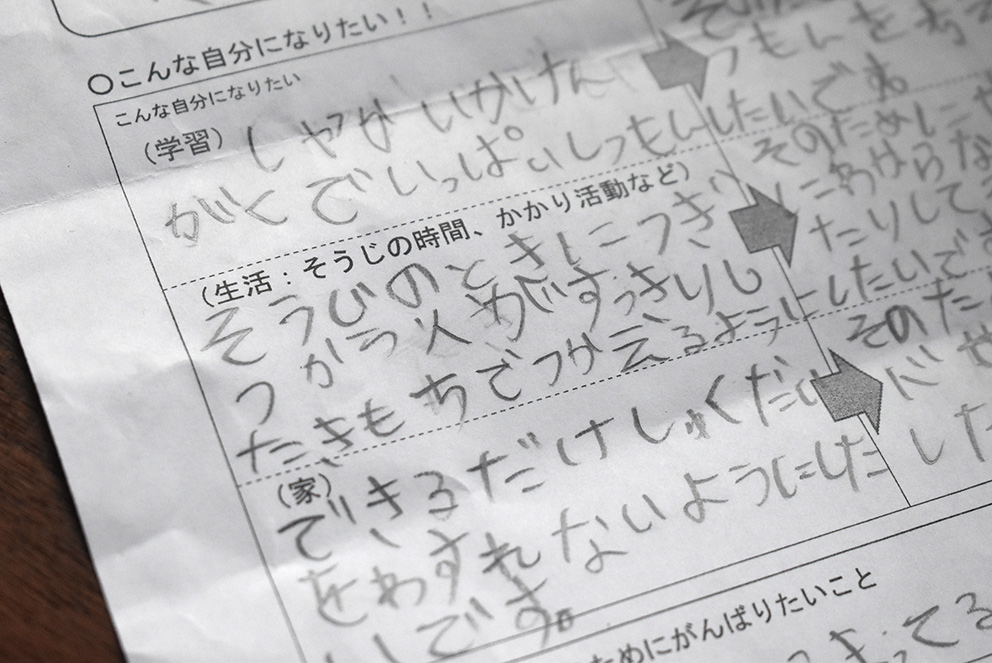 〇こんな自分になりたい！！
こんな自分になりたい
（学習）しゃかいかけん
がくでいっぱいしつもんしたいです。
（生活：そうじの時間、かかり活動など）
そうじのときにつぎ
つかう人がすっきりし
たきもちでつかえるようにしたいです
（家）
できるだけしゅくだい
をわすれないようにした
いです。
つもんを考
そのために
にわからな
たりして
そのため
に
した
ためにがんばりたいこと
てる